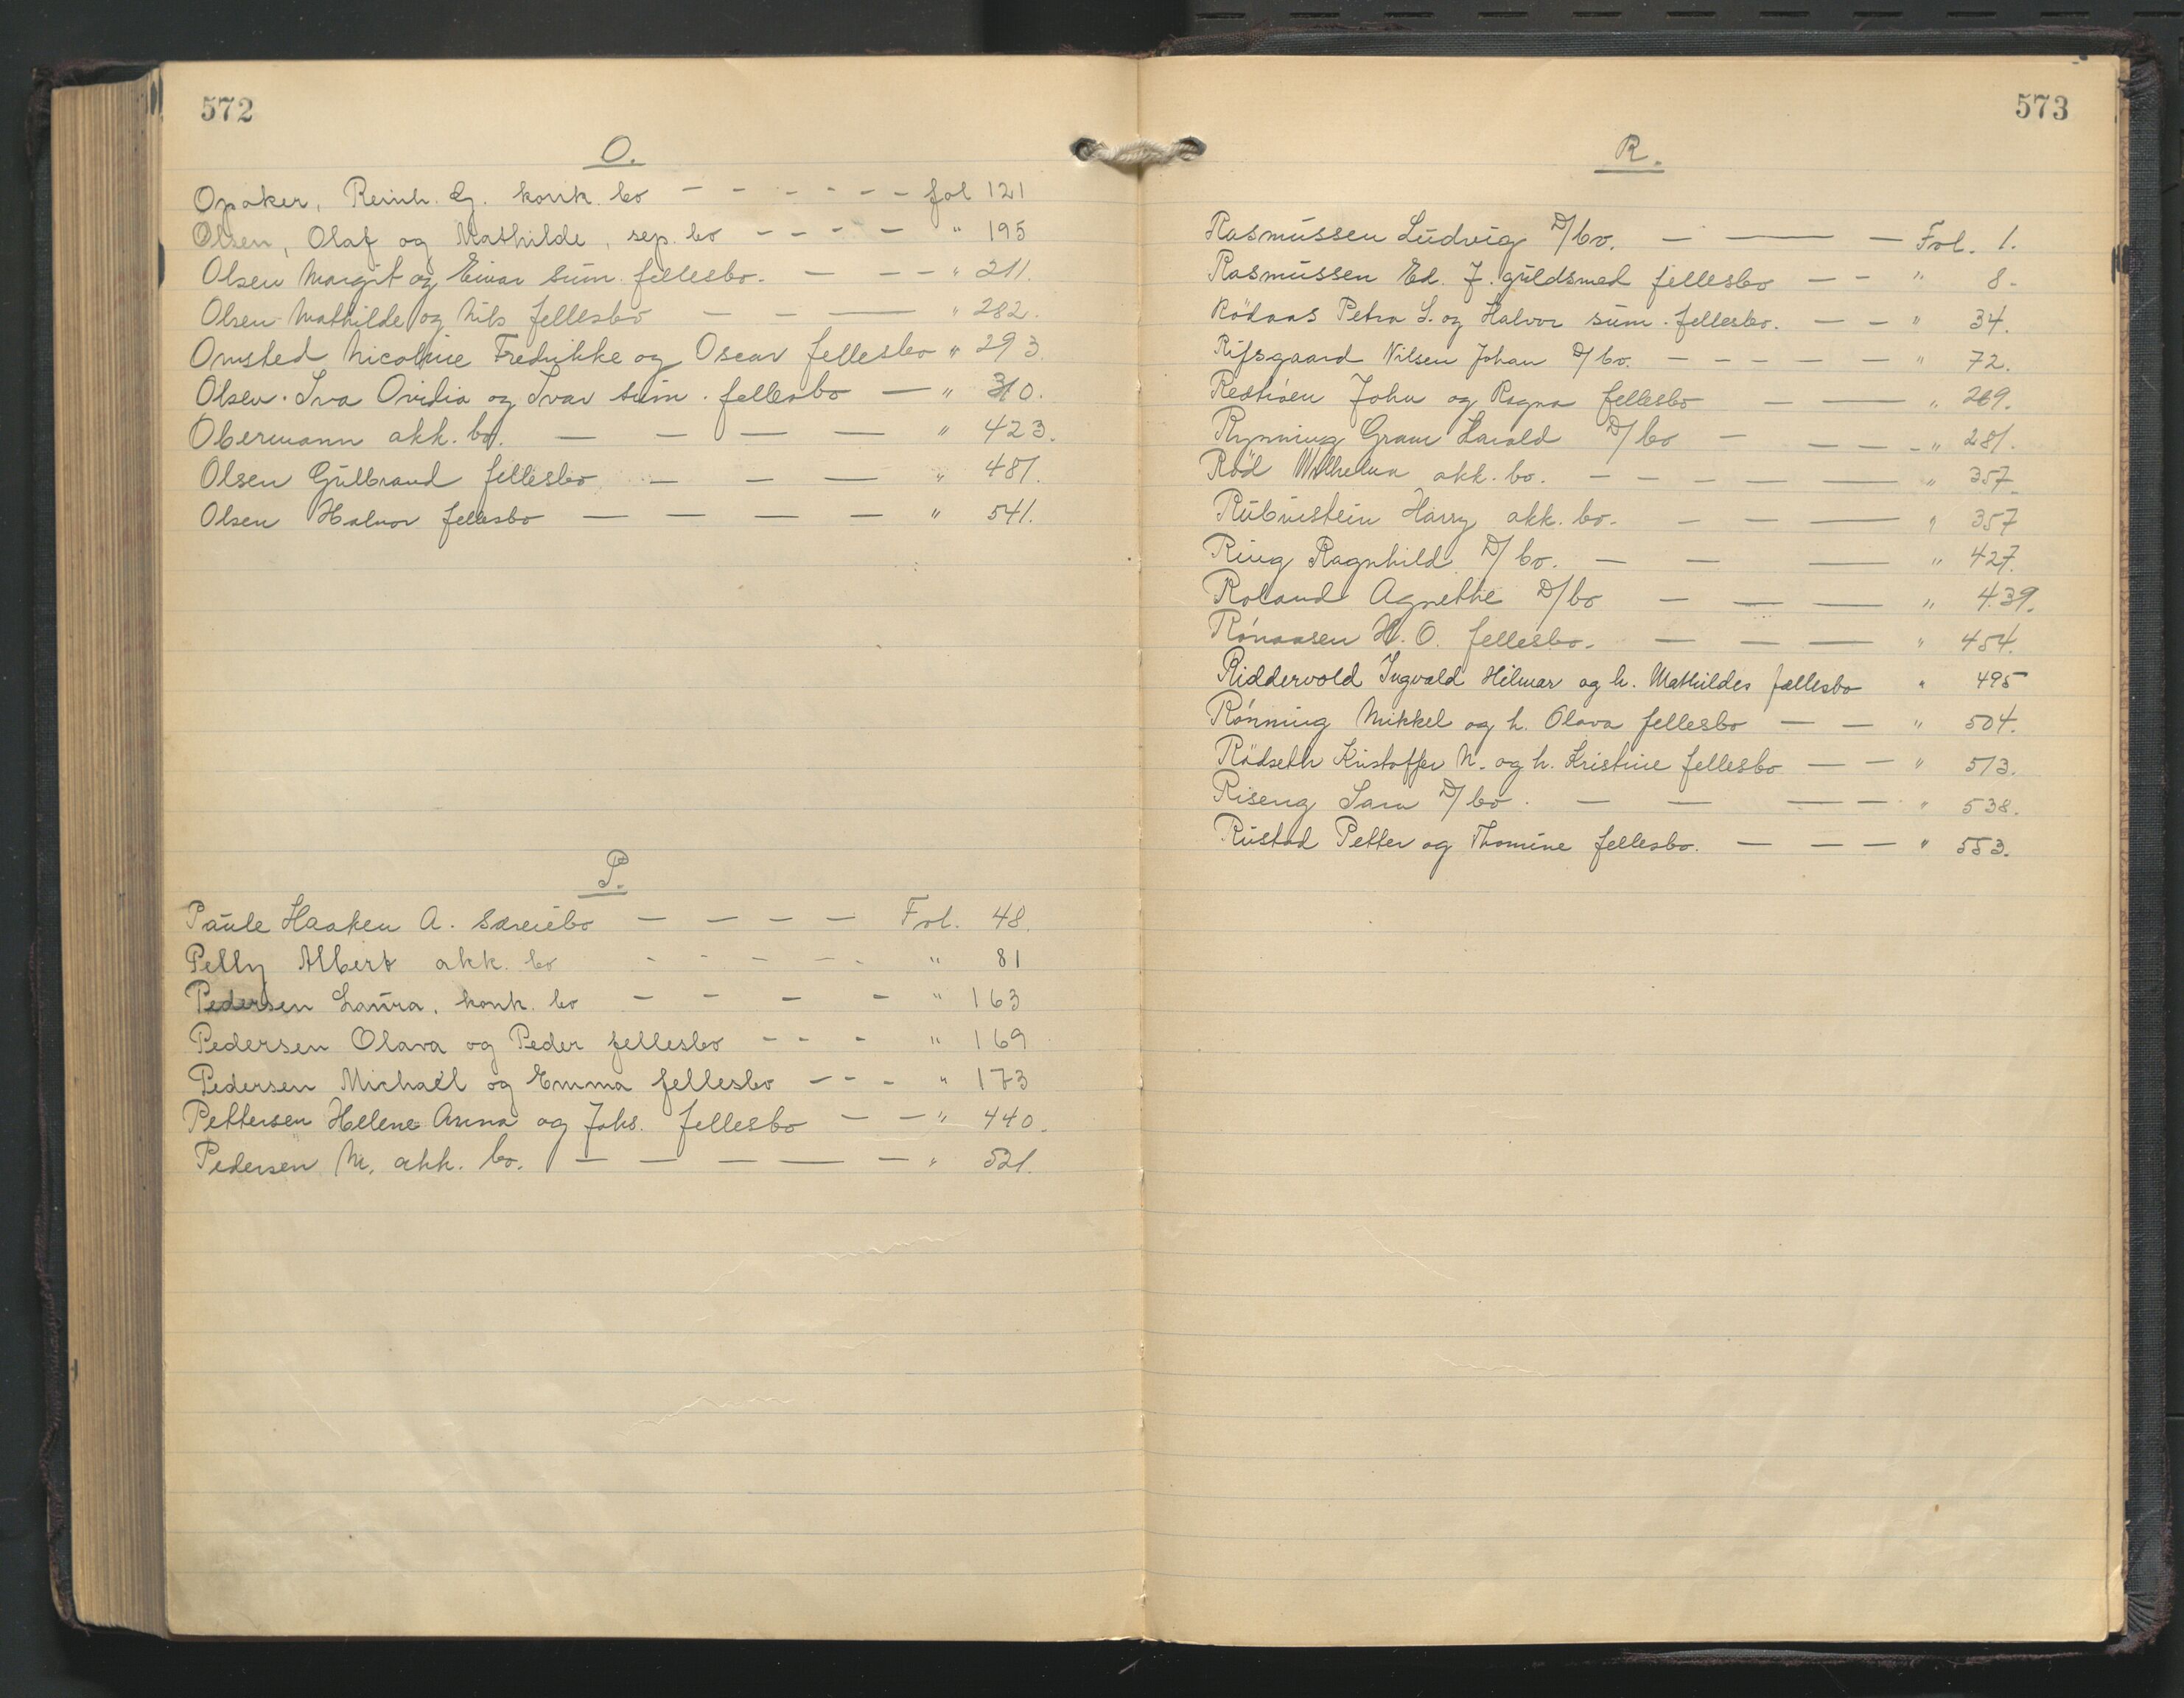 572
O.
Opaker, Reinh. konk. bo - - - - - - fol 121
Olsen, Olaf og Mathilde, sep. bo - - - - " 195
Olsen Margit og Einar sum. fellesbo. - - - " 211.
Olsen Mathilde og Nils fellesbo - - - " 282.
Omsted Nicoline Fredrikke og Oscar fellesbo " 293.
Olsen Iva Ovidia og Ivar sum. fellesbo - " 310.
Obermann akk. bo. - - - - " 423.
Olsen Gulbrand fellesbo - - - " 481.
Olsen Halvor fellesbo - - - - " 541.
P.
Paule Haaken A. særeiebo - - - - Fol. 48.
Pelly Albert akk. bo - - - - - " 81
Pedersen Laura, konk. bo - - - - " 163
Pedersen Olava og Peder fellesbo - - - " 169
Pedersen Michael og Emma fellesbo - - - " 173
Pettersen Helene Anna og Johs. fellesbo - - " 440.
Pedersen M. akk. bo. - - - - - " 521.
573
R.
Rasmussen Ludvig D/bo. - - - Fol. 1.
Rasmussen Ed. J. guldsmed fellesbo - - " 8.
Rödaas Petra L. og Halvor sum. fellesbo. - - " 34.
Rifsgaard Nilsen Johan D/bo. - - - - - " 72.
John og Ragna fellesbo - - " 269.
Rynning Gram Harald D/bo - - - - " 281.
Röd Wilhelma akk. bo. - - - - - - " 357.
Rubinstein Harry akk. bo. - - - " 357
Ring Ragnhild D/bo. - - - " 427.
Roland Agnethe D/bo - - - " 439.
Rónaasen H. O. fellesbo. - - - " 454.
Riddervold Ingvald Hilmar og h. Mathildes fællesbo " 495
Rónning Mikkel og h. Olava fellesbo - - " 504.
Rödseth Kristoffer N. og h. Kristine fellesbo - - " 513.
Riseng Sara D/bo. - - - - " 538.
Rustad Petter og Thomine fellesbo. - - - " 553.